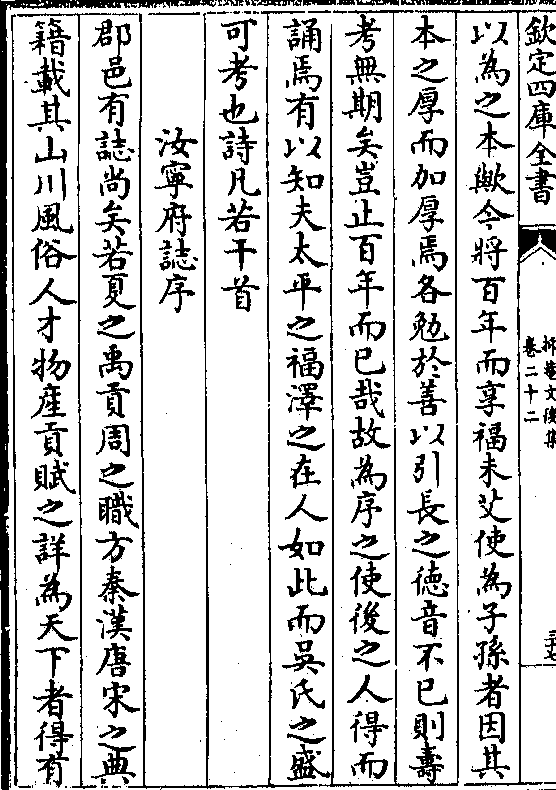 欽定四庫全書
抑菴文後集
卷二十二
三十七
以為之本歟今將百年而享福未艾使為子孫者因其
本之厚而加厚焉各勉於善以引長之徳音不已則壽
考無期矣豈止百年而已哉故為序之使後之人得而
誦焉有以知夫太平之福澤之在人如此而吳氏之盛
可考也詩凡若干首
汝寧府誌序
郡邑有誌尚矣若夏之禹貢周之職方秦漢唐宋之典
籍載其山川風俗人才物産貢賦之詳為天下者得有